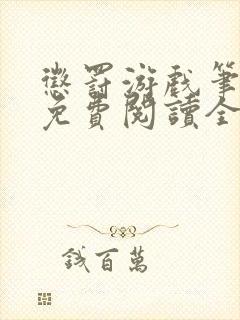 懲罰游戲筆
免費閱讀全
錢百萬